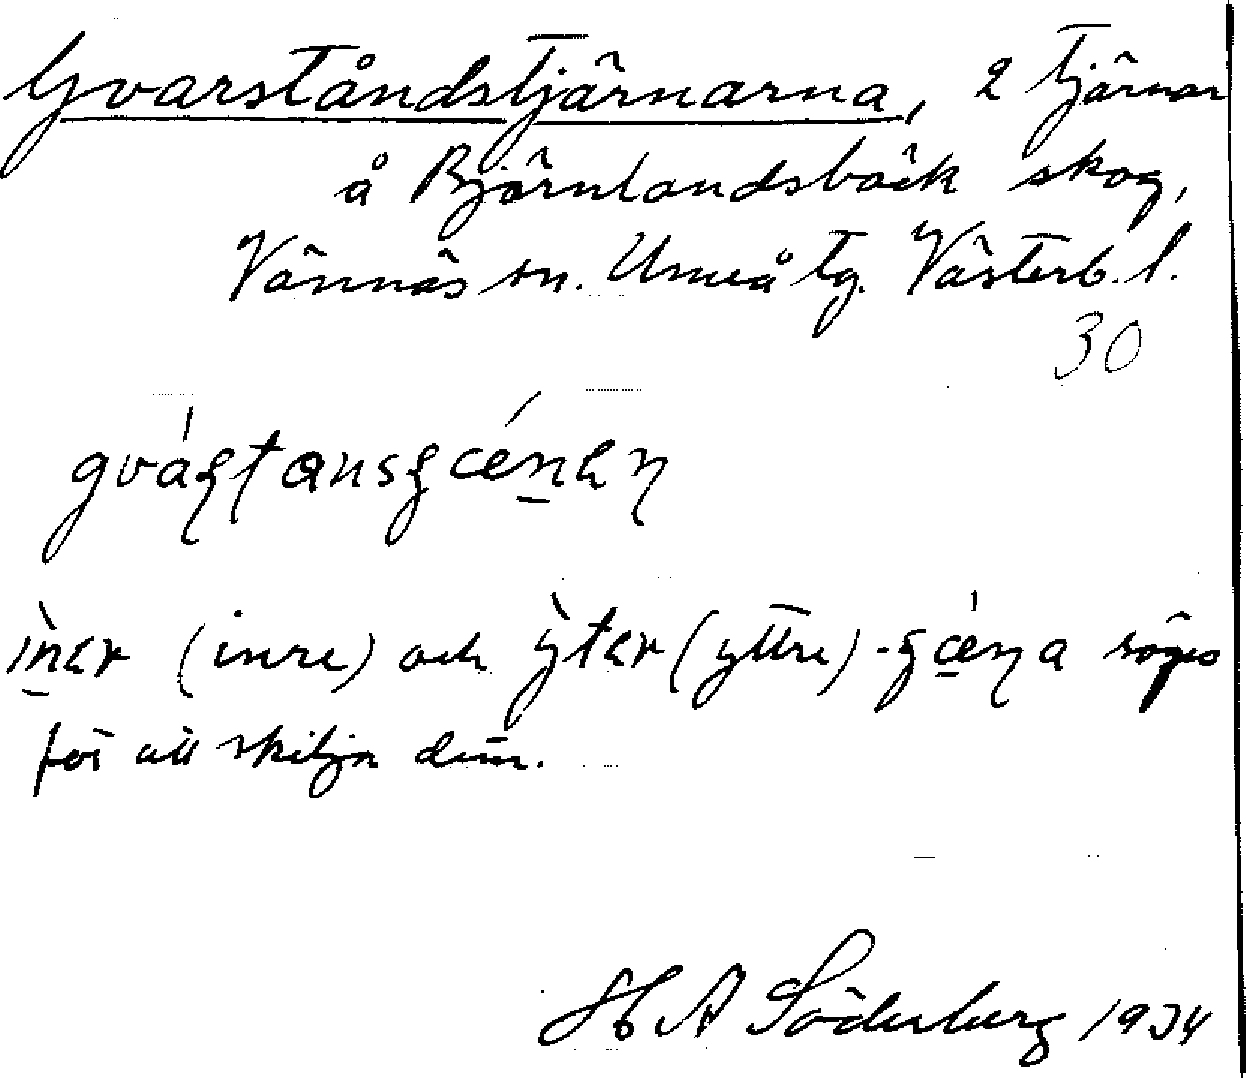 Gvarståndstjärnarna, 2 tjärnar
å Björnlandsbäck skog,
Vännäs sn. Umeå tg. Västerb. l.
30
(inre) och (yttre) - säges
för att skilja dem.
H A Söderberg 1934